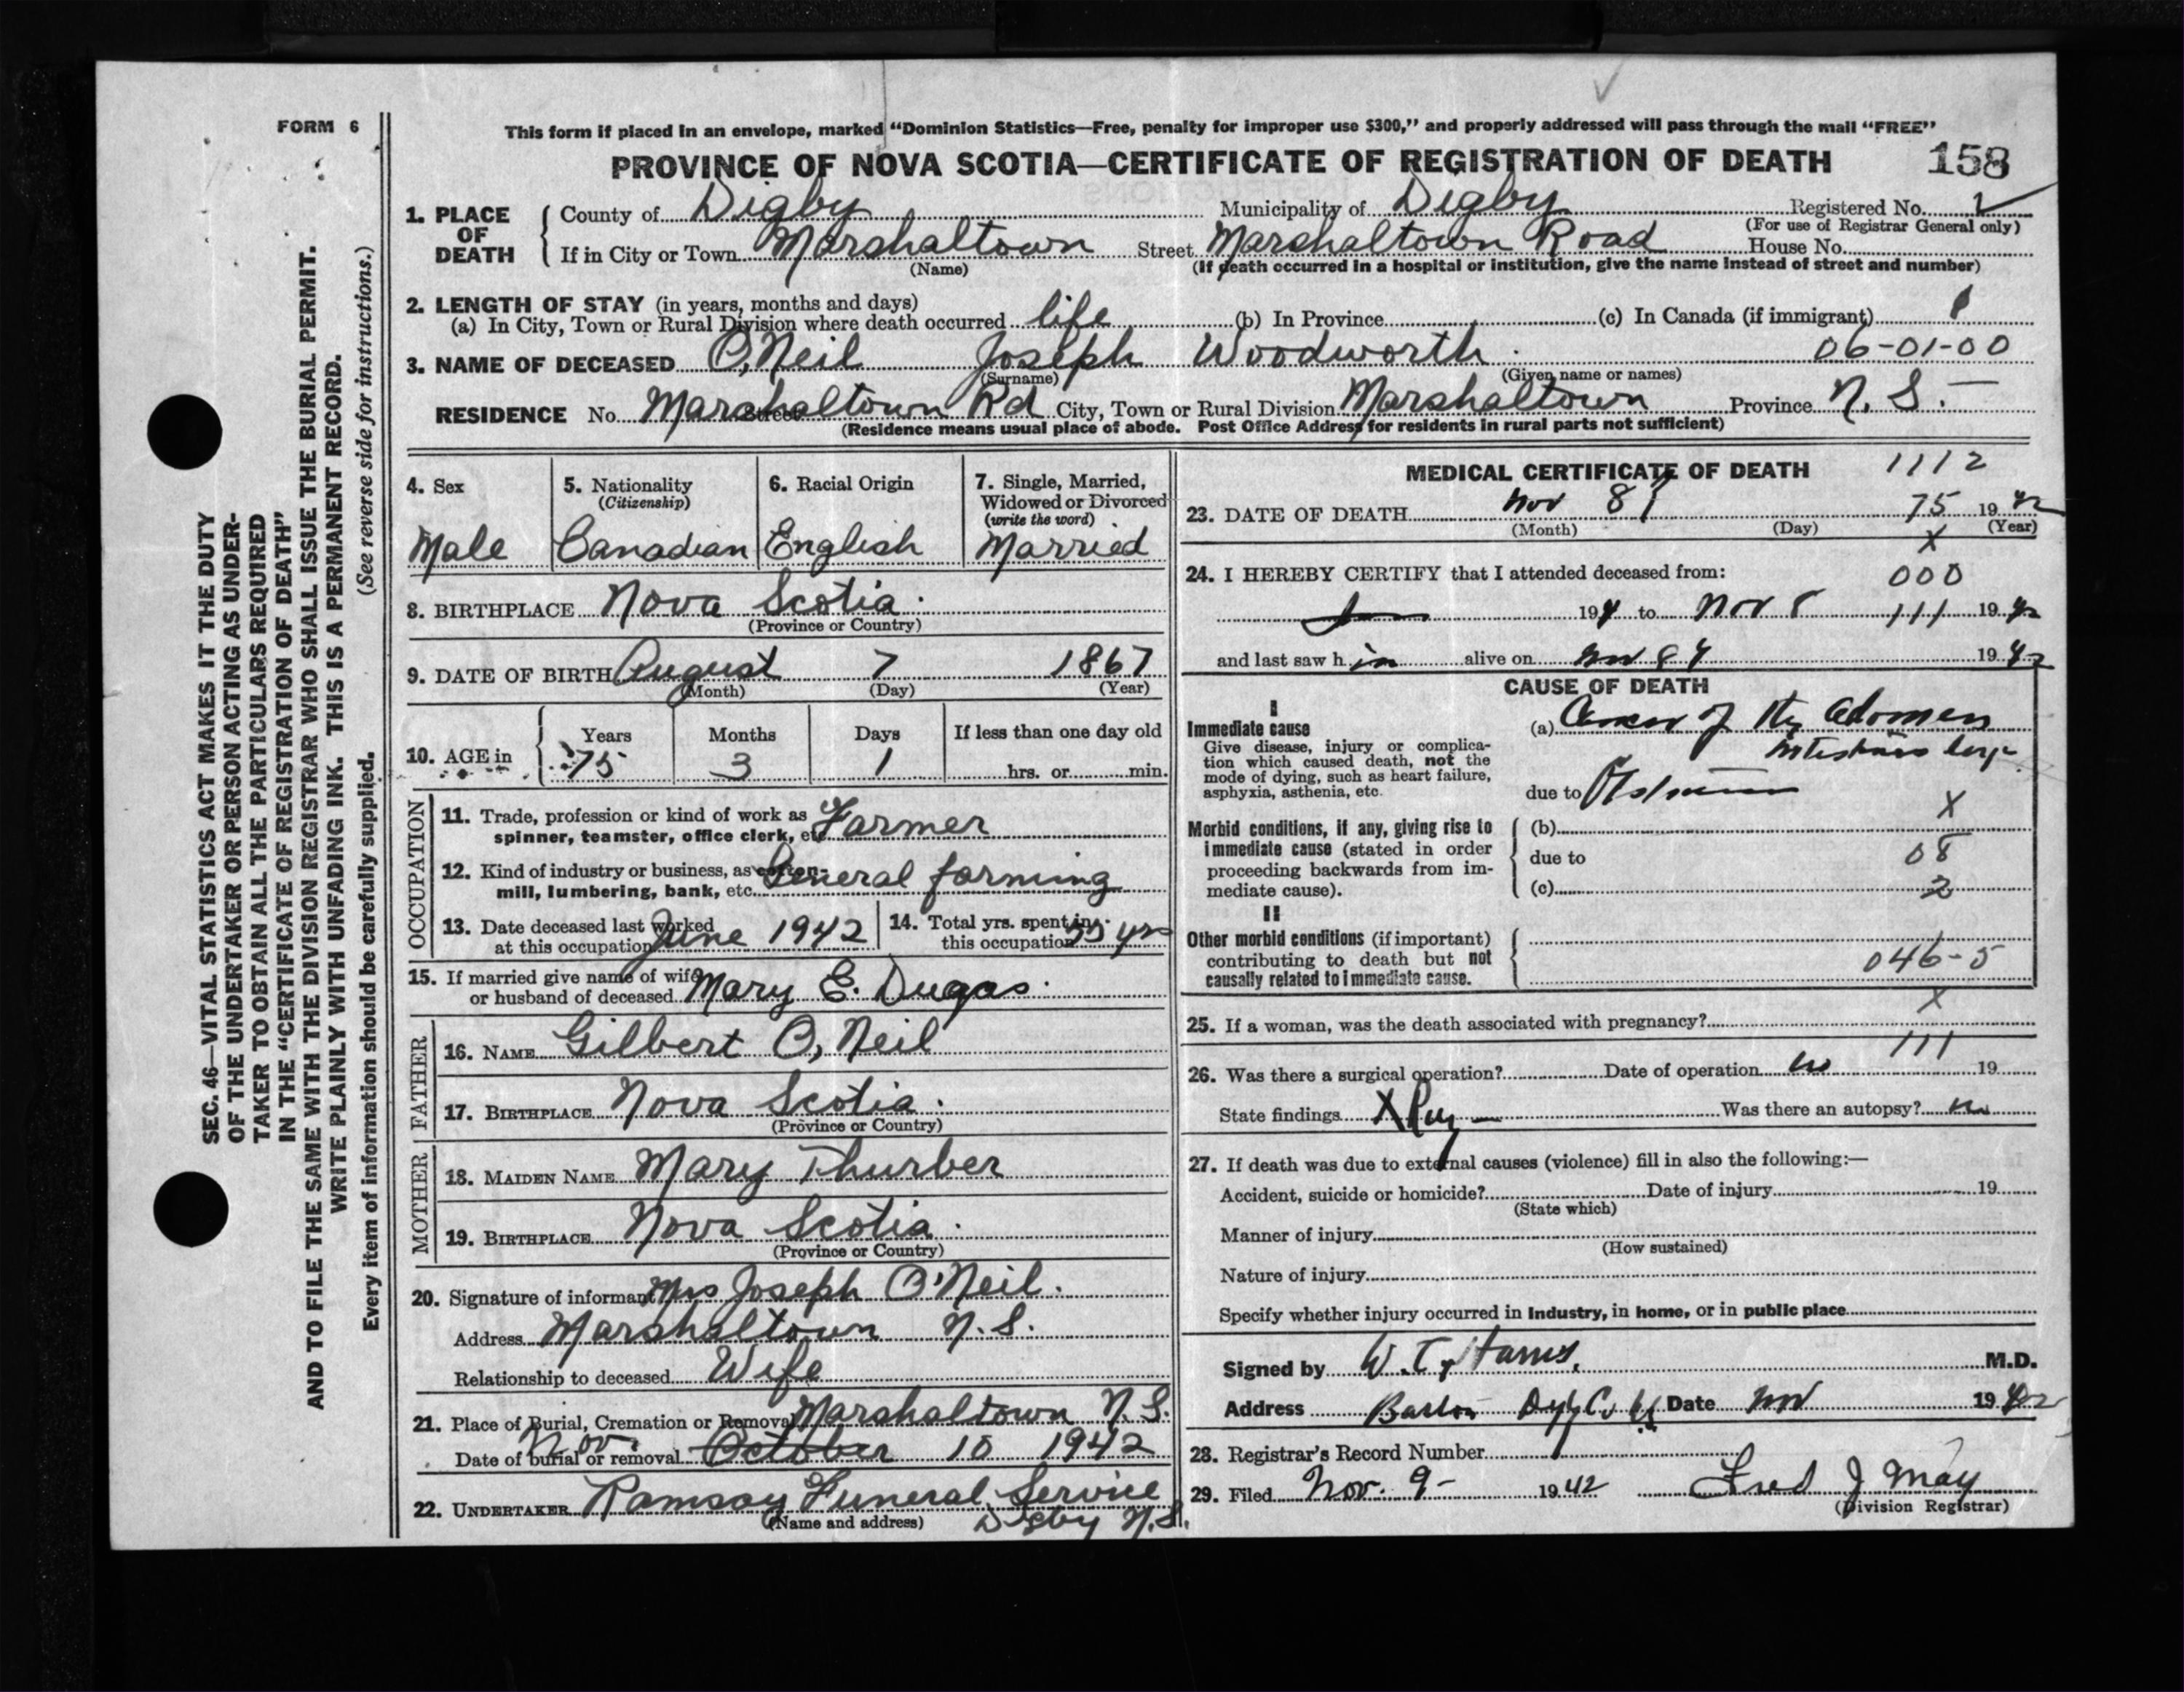 FORM 6
This form if placed in an envelope, marked "Dominion Statistics—Free, penalty for improper use $300," and properly addressed will pass through the mail "FREE"
PROVINCE OF NOVA SCOTIA—CERTIFICATE OF REGISTRATION OF DEATH 158
1. PLACE OF DEATH County of Digby Municipality of Digby Registered No.
(For use of Registrar General only)
If in City or Town Marshaltown Street Marshaltown Road House No.
(Name) (If death occurred in a hospital or institution, give the name instead of street and number)
2. LENGTH OF STAY (in years, months and days)
(a) In City, Town or Rural Division where death occurred life (b) In Province (c) In Canada (if immigrant)
3. NAME OF DECEASED O,Neil Joseph Woodworth 06-01-00
(Surname) (Given name or names)
RESIDENCE No. Marshaltown Rd City, Town or Rural Division Marshaltown Province N. S.
Street
(Residence means usual place of abode. Post Office Address for residents in rural parts not sufficient)
4. Sex
Male
5. Nationality
(Citizenship)
Canadian
6. Racial Origin
English
7. Single, Married,
Widowed or Divorced
(write the word)
Married
8. BIRTHPLACE Nova Scotia
(Province or Country)
9. DATE OF BIRTH August 7 1867
(Month) (Day) (Year)
10. AGE in Years Months Days If less than one day old
75 3 1 hrs. or min.
OCCUPATION
11. Trade, profession or kind of work as Farmer
spinner, teamster, office clerk, etc
12. Kind of industry or business, as cotton- General farming
mill, lumbering, bank, etc.
13. Date deceased last worked
at this occupation June 1942
14. Total yrs. spent in
this occupation 55 yrs
15. If married give name of wife
or husband of deceased Mary E. Dugas.
FATHER
16. NAME Gilbert O, Neil
17. BIRTHPLACE Nova Scotia.
(Province or Country)
MOTHER
18. MAIDEN NAME Mary Thurber
19. BIRTHPLACE Nova Scotia.
(Province or Country)
20. Signature of informant Mrs Joseph O'Neil.
Address Marshaltown N.S.
Relationship to deceased Wife
21. Place of Burial, Cremation or Removal Marshaltown N.S.
Date of burial or removal Nov. October 10 1942
22. UNDERTAKER Ramsay Funeral Service
(Name and address) Digby N.S.
MEDICAL CERTIFICATE OF DEATH 1112
23. DATE OF DEATH Nov 8 75 1942
(Month) (Day) (Year)
X
24. I HEREBY CERTIFY that I attended deceased from: 000
194 to Nov 8 111 1942
and last saw h im alive on Nov 8 1942
CAUSE OF DEATH
I
Immediate cause
Give disease, injury or complica-
tion which caused death, not the
mode of dying, such as heart failure,
asphyxia, asthenia, etc.
(a) Cancer of the Abdomen
due to
X
Morbid conditions, if any, giving rise to
immediate cause (stated in order
proceeding backwards from im-
mediate cause).
(b)
due to 08
(c) 2
II
Other morbid conditions (if important)
contributing to death but not
causally related to immediate cause.
046-5
X
25. If a woman, was the death associated with pregnancy?
111
26. Was there a surgical operation? Date of operation no 19
State findings X Ray Was there an autopsy? no
27. If death was due to external causes (violence) fill in also the following:—
Accident, suicide or homicide? Date of injury 19
(State which)
Manner of injury
(How sustained)
Nature of injury
Specify whether injury occurred in Industry, in home, or in public place
Signed by M.D.
Address Barton Date Nov 1942
28. Registrar's Record Number
29. Filed Nov. 9- 1942 Fred J May
(Division Registrar)
SEC. 46—VITAL STATISTICS ACT MAKES IT THE DUTY
OF THE UNDERTAKER OR PERSON ACTING AS UNDER-
TAKER TO OBTAIN ALL THE PARTICULARS REQUIRED
IN THE "CERTIFICATE OF REGISTRATION OF DEATH"
AND TO FILE THE SAME WITH THE DIVISION REGISTRAR WHO SHALL ISSUE THE BURIAL PERMIT.
WRITE PLAINLY WITH UNFADING INK. THIS IS A PERMANENT RECORD.
Every item of information should be carefully supplied. (See reverse side for instructions.)